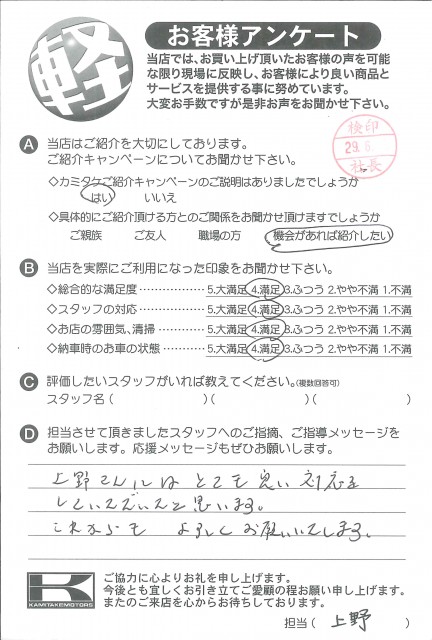 軽
お客様アンケート
当店では、お買い上げ頂いたお客様の声を可能
な限り現場に反映し、お客様により良い商品と
サービスを提供する事に努めています。
大変お手数ですが是非お声をお聞かせ下さい。
検印
29.6
社長
A 当店はご紹介を大切にしております。
ご紹介キャンペーンについてお聞かせ下さい。
◇カミタケご紹介キャンペーンのご説明はありましたでしょうか
はい いいえ
◇具体的にご紹介頂ける方とのご関係をお聞かせ頂けますでしょうか
ご親族 ご友人 職場の方 機会があれば紹介したい
B 当店を実際にご利用になった印象をお聞かせ下さい。
◇総合的な満足度 ……………… 5.大満足 4.満足 3.ふつう 2.やや不満 1.不満
◇スタッフの対応 ……………… 5.大満足 4.満足 3.ふつう 2.やや不満 1.不満
◇お店の雰囲気、清掃 ………… 5.大満足 4.満足 3.ふつう 2.やや不満 1.不満
◇納車時のお車の状態 ………… 5.大満足 4.満足 3.ふつう 2.やや不満 1.不満
C 評価したいスタッフがいれば教えてください。(複数回答可)
スタッフ名 ( )( )( )
D 担当させて頂きましたスタッフへのご指摘、ご指導メッセージを
お願いします。応援メッセージもぜひお願いします。
上野さんにはとても良い対応を
していただいたと思います。
これからも よろしくお願いいたします。
K
KAMITAKE MOTORS
ご協力に心よりお礼を申し上げます。
今後とも宜しくお引き立てご愛顧の程お願い申し上げます。
またのご来店を心からお待ちしております。
担当 ( 上野 )